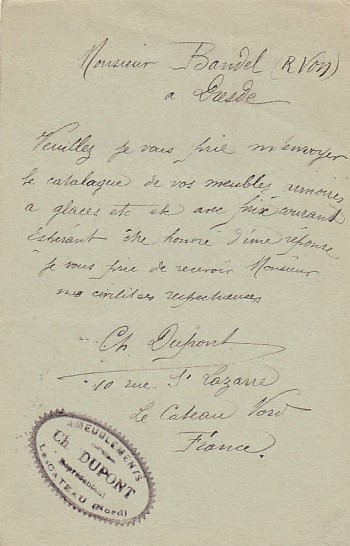 Monsieur Bandel (R Von)
a Dresde
Veuillez je vous prie m'envoyer
le catalogue de vos meubles armoires
a glaces etc etc avec prix courant
Esterant être honoré d'une réponse
je vous prie de recevoir Monsieur
mes civilites respectueuses
Ch Dupont
10 rue St Lazarre
Le Cateau Nord
France.
AMEUBLEMENTS
Ch DUPONT
Représentant
Le CATEAU (Nord)